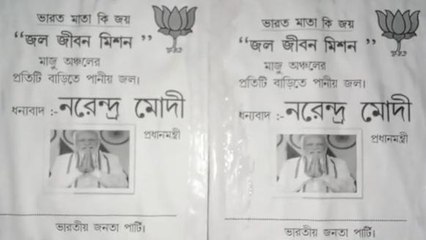 ভারত মাতা কি জয়
"জল জীবন মিশন"
মাজু অঞ্চলের
প্রতিটি বাড়িতে পানীয় জল।
ধন্যবাদ :- নরেন্দ্র মোদী
প্রধানমন্ত্রী
ভারতীয় জনতা পার্টি।
ভারত মাতা কি জয়
"জল জীবন মিশন"
মাজু অঞ্চলের
প্রতিটি বাড়িতে পানীয় জল।
ধন্যবাদ :- নরেন্দ্র মোদী
প্রধানমন্ত্রী
ভারতীয় জনতা পার্টি।